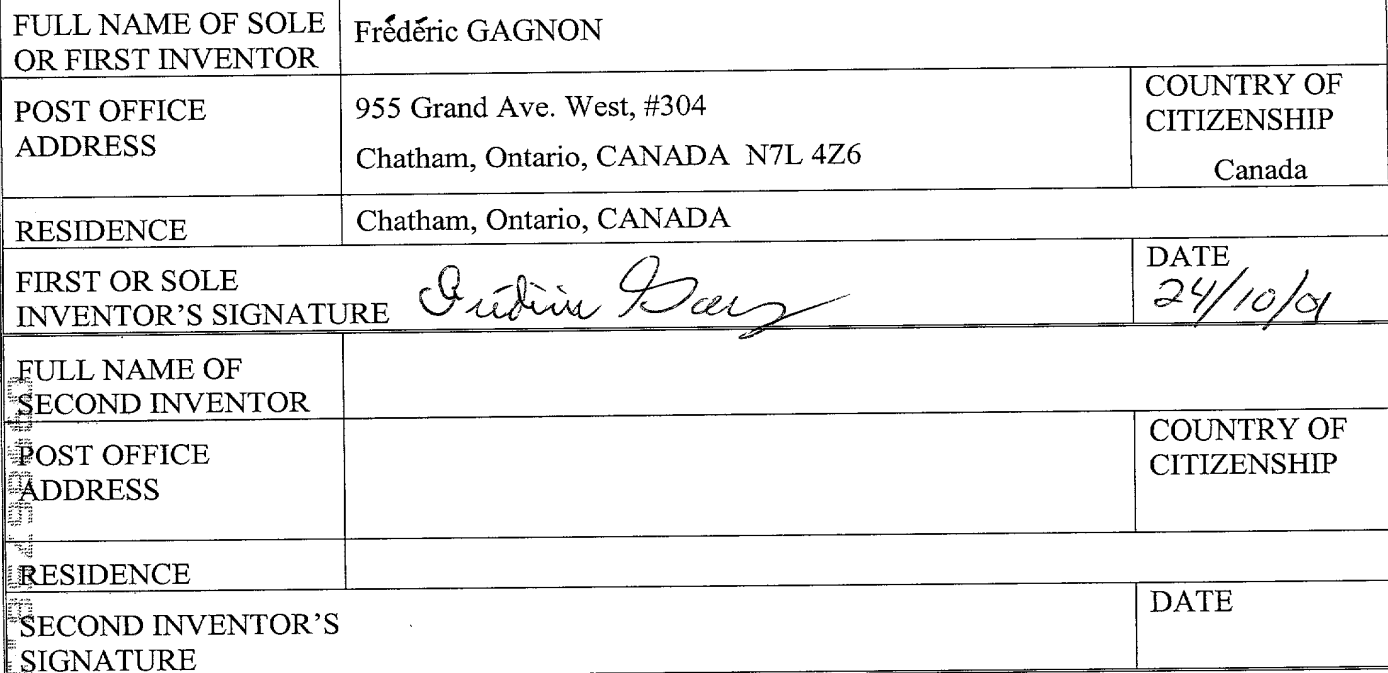 FULL NAME OF SOLE
OR FIRST INVENTOR
Frédéric GAGNON
POST OFFICE
ADDRESS
955 Grand Ave. West, #304
Chatham, Ontario, CANADA N7L 4Z6
COUNTRY OF
CITIZENSHIP
Canada
RESIDENCE
Chatham, Ontario, CANADA
FIRST OR SOLE
INVENTOR'S SIGNATURE
DATE
24/10/01
FULL NAME OF
SECOND INVENTOR
POST OFFICE
ADDRESS
COUNTRY OF
CITIZENSHIP
RESIDENCE
SECOND INVENTOR'S
SIGNATURE
DATE